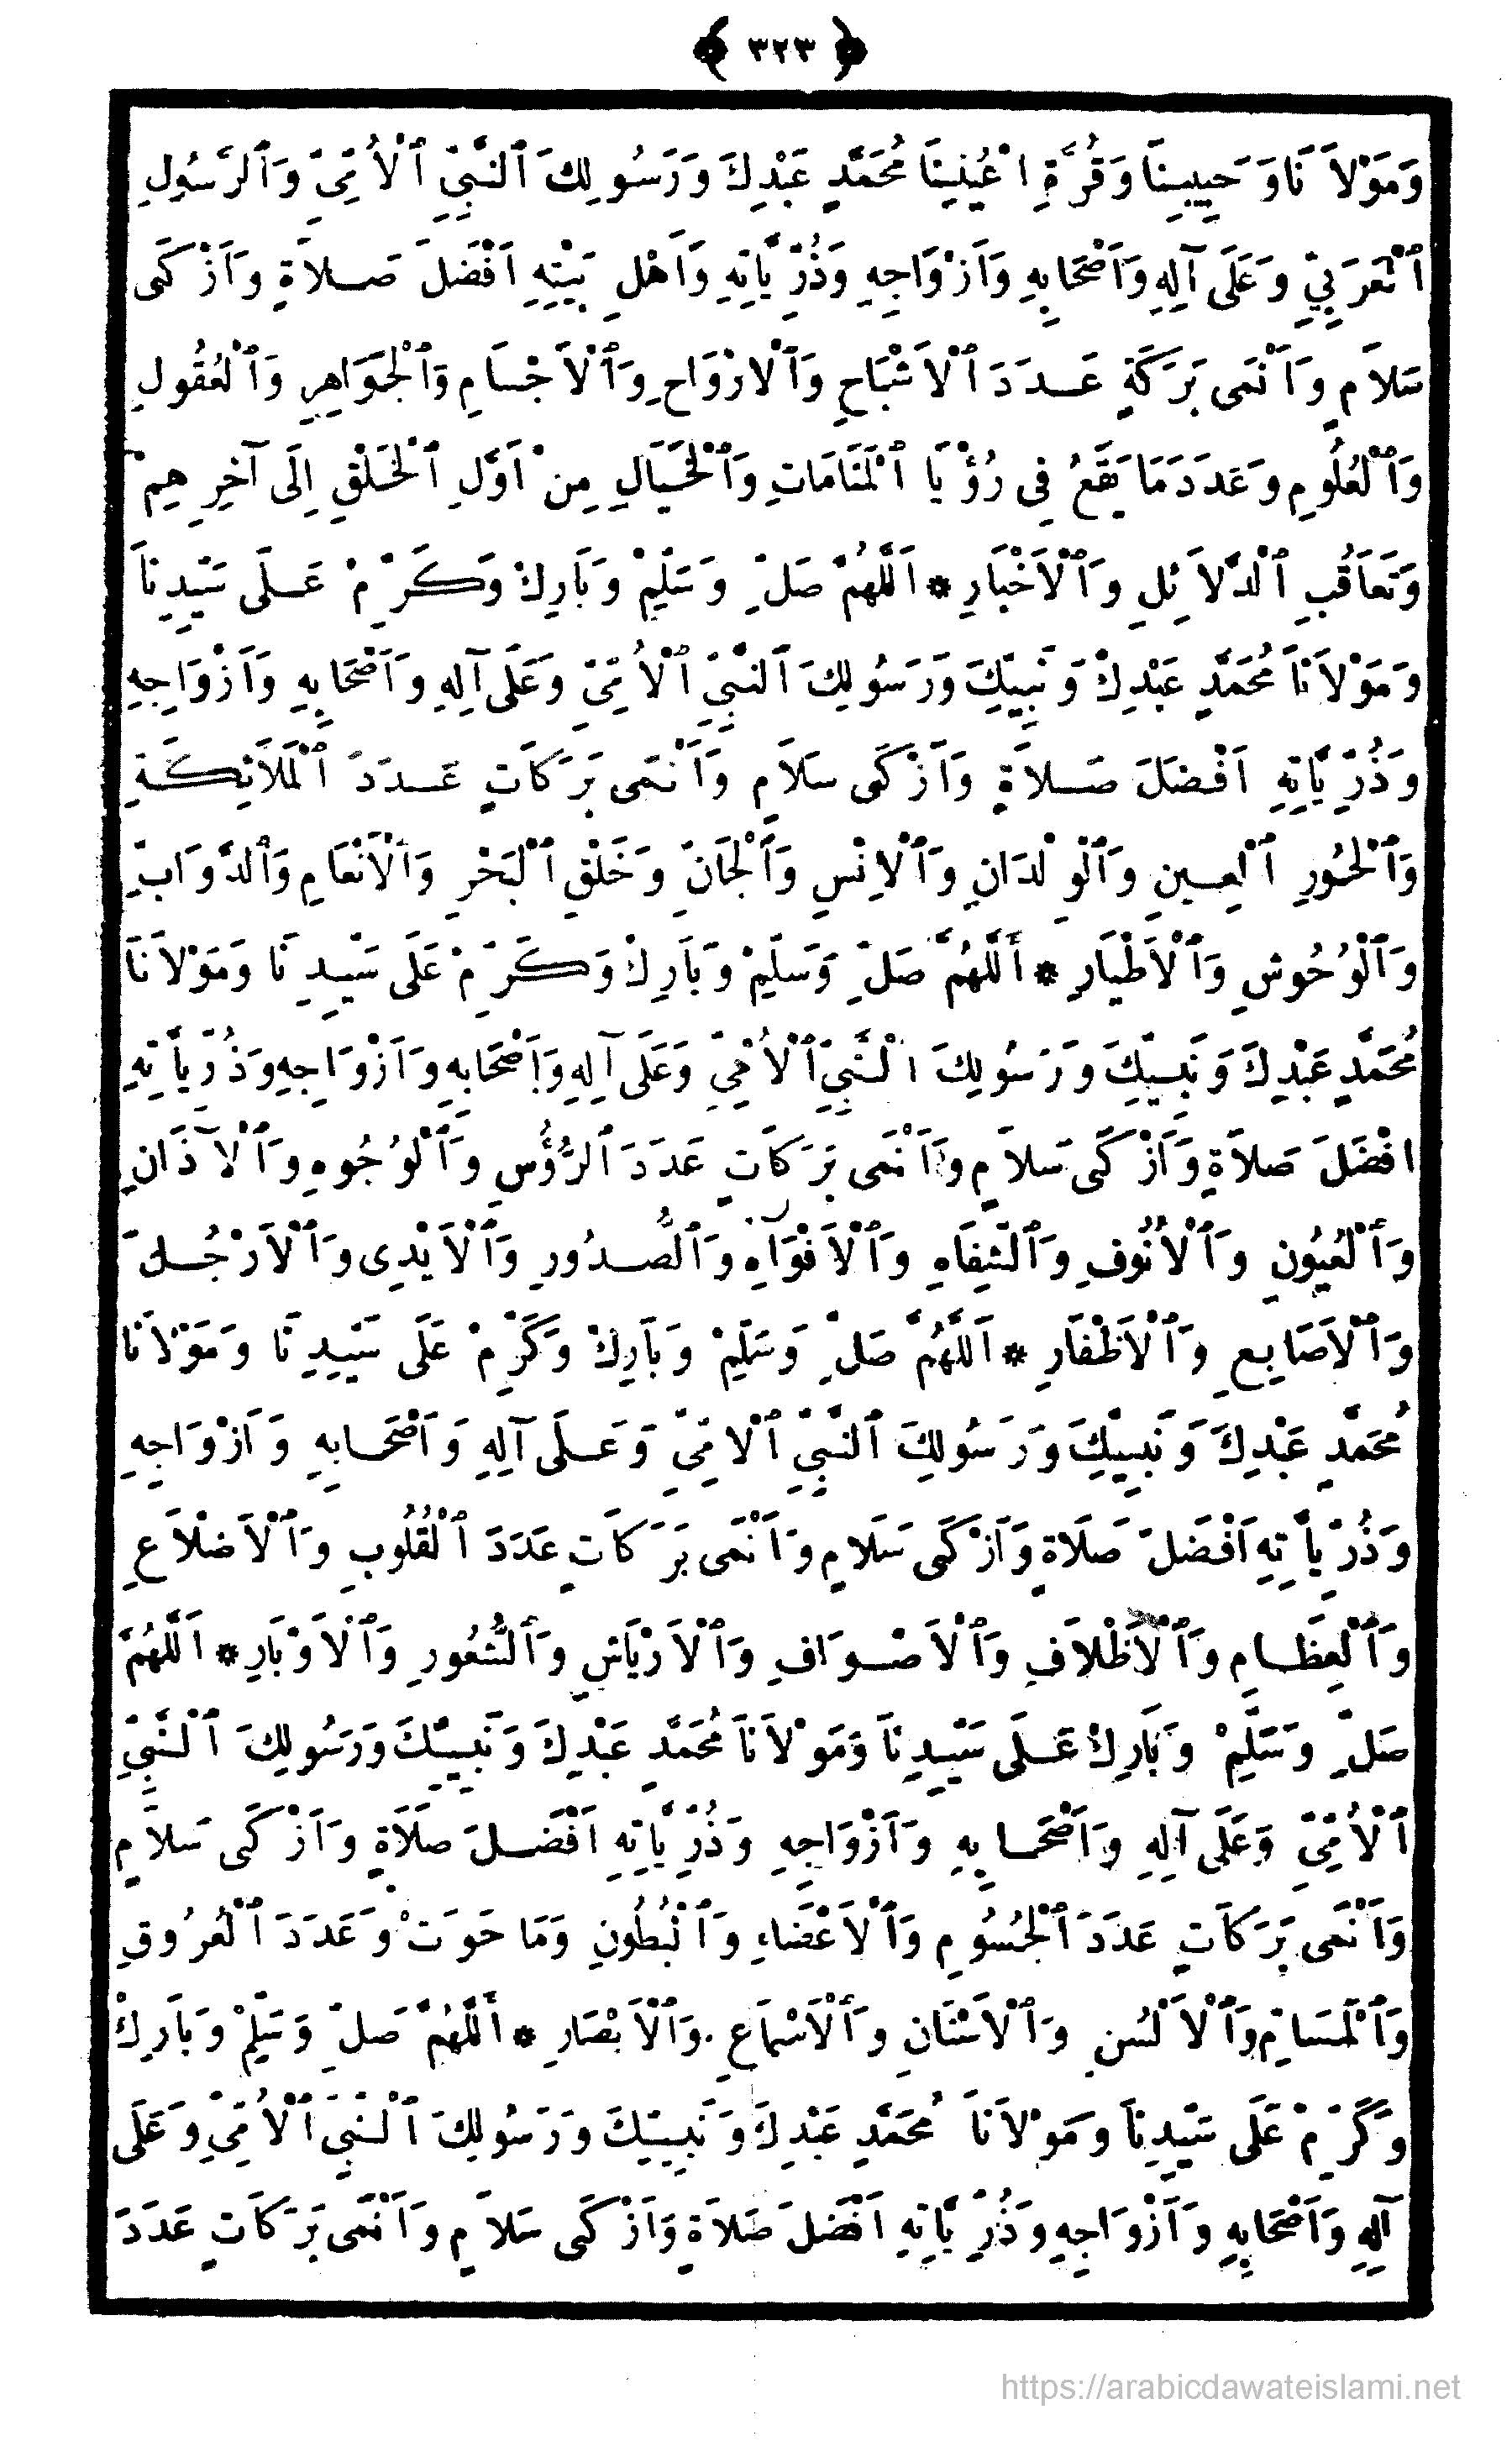 ﴿ ٣٢٣ ﴾
وَمَوْلَانَا وَحَبِيبِنَا وَقُرَّةِ اَعْيُنِنَا مُحَمَّدٍ عَبْدِكَ وَرَسُولِكَ ٱلنَّبِيِّ ٱلْاُمِّيِّ وَٱلرَّسُولِ
ٱلْعَرَبِيِّ وَعَلَى آلِهِ وَاَصْحَابِهِ وَاَزْوَاجِهِ وَذُرِّيَّاتِهِ وَاَهْلِ بَيْتِهِ اَفْضَلَ صَلَاةٍ وَاَزْكَى
سَلَامٍ وَاَنْمَى بَرَكَةٍ عَدَدَ ٱلْاَشْبَاحِ وَٱلْاَرْوَاحِ وَٱلْاَجْسَامِ وَٱلْجَوَاهِرِ وَٱلْعُقُولِ
وَٱلْعُلُومِ وَعَدَدَ مَا يَقَعُ فِى رُؤْيَا ٱلْمَنَامَاتِ وَٱلْخَيَالِ مِنْ اَوَّلِ ٱلْخَلْقِ اِلَى آخِرِهِمْ
وَتَعَاقُبِ ٱلدَّلَائِلِ وَٱلْاَخْبَارِ * اَللّٰهُمَّ صَلِّ وَسَلِّمْ وَبَارِكْ وَكَرِّمْ عَلَى سَيِّدِنَا
وَمَوْلَانَا مُحَمَّدٍ عَبْدِكَ وَنَبِيِّكَ وَرَسُولِكَ ٱلنَّبِيِّ ٱلْاُمِّيِّ وَعَلَى آلِهِ وَاَصْحَابِهِ وَاَزْوَاجِهِ
وَذُرِّيَّاتِهِ اَفْضَلَ صَلَاةٍ وَاَزْكَى سَلَامٍ وَاَنْمَى بَرَكَاتٍ عَدَدَ ٱلْمَلَائِكَةِ
وَٱلْحُورِ ٱلْعِينِ وَٱلْوِلْدَانِ وَٱلْاِنْسِ وَٱلْجَانِّ وَخَلْقِ ٱلْبَحْرِ وَٱلْاَنْعَامِ وَٱلدَّوَابِّ
وَٱلْوُحُوشِ وَٱلْاَطْيَارِ * اَللّٰهُمَّ صَلِّ وَسَلِّمْ وَبَارِكْ وَكَرِّمْ عَلَى سَيِّدِنَا وَمَوْلَانَا
مُحَمَّدٍ عَبْدِكَ وَنَبِيِّكَ وَرَسُولِكَ ٱلنَّبِيِّ ٱلْاُمِّيِّ وَعَلَى آلِهِ وَاَصْحَابِهِ وَاَزْوَاجِهِ وَذُرِّيَّاتِهِ
اَفْضَلَ صَلَاةٍ وَاَزْكَى سَلَامٍ وَاَنْمَى بَرَكَاتٍ عَدَدَ ٱلرُّؤُسِ وَٱلْوُجُوهِ وَٱلْآذَانِ
وَٱلْعُيُونِ وَٱلْاُنُوفِ وَٱلشِّفَاهِ وَٱلْاَفْوَاهِ وَٱلصُّدُورِ وَٱلْاَيْدِى وَٱلْاَرْجُلِ
وَٱلْاَصَابِعِ وَٱلْاَظْفَارِ * اَللّٰهُمَّ صَلِّ وَسَلِّمْ وَبَارِكْ وَكَرِّمْ عَلَى سَيِّدِنَا وَمَوْلَانَا
مُحَمَّدٍ عَبْدِكَ وَنَبِيِّكَ وَرَسُولِكَ ٱلنَّبِيِّ ٱلْاُمِّيِّ وَعَلَى آلِهِ وَاَصْحَابِهِ وَاَزْوَاجِهِ
وَذُرِّيَّاتِهِ اَفْضَلَ صَلَاةٍ وَاَزْكَى سَلَامٍ وَاَنْمَى بَرَكَاتٍ عَدَدَ ٱلْقُلُوبِ وَٱلْاَضْلَاعِ
وَٱلْعِظَامِ وَٱلْاَظْلَافِ وَٱلْاَصْوَافِ وَٱلْاَرْيَاشِ وَٱلشُّعُورِ وَٱلْاَوْبَارِ * اَللّٰهُمَّ
صَلِّ وَسَلِّمْ وَبَارِكْ عَلَى سَيِّدِنَا وَمَوْلَانَا مُحَمَّدٍ عَبْدِكَ وَنَبِيِّكَ وَرَسُولِكَ ٱلنَّبِيِّ
ٱلْاُمِّيِّ وَعَلَى آلِهِ وَاَصْحَابِهِ وَاَزْوَاجِهِ وَذُرِّيَّاتِهِ اَفْضَلَ صَلَاةٍ وَاَزْكَى سَلَامٍ
وَاَنْمَى بَرَكَاتٍ عَدَدَ ٱلْجُسُومِ وَٱلْاَعْضَاءِ وَٱلْبُطُونِ وَمَا حَوَتْ وَعَدَدَ ٱلْعُرُوقِ
وَٱلْمَسَامِّ وَٱلْاَلْسُنِ وَٱلْاَسْنَانِ وَٱلْاَسْمَاعِ وَٱلْاَبْصَارِ * اَللّٰهُمَّ صَلِّ وَسَلِّمْ وَبَارِكْ
وَكَرِّمْ عَلَى سَيِّدِنَا وَمَوْلَانَا مُحَمَّدٍ عَبْدِكَ وَنَبِيِّكَ وَرَسُولِكَ ٱلنَّبِيِّ ٱلْاُمِّيِّ وَعَلَى
آلِهِ وَاَصْحَابِهِ وَاَزْوَاجِهِ وَذُرِّيَّاتِهِ اَفْضَلَ صَلَاةٍ وَاَزْكَى سَلَامٍ وَاَنْمَى بَرَكَاتٍ عَدَدَ
https://arabicdawateislami.net